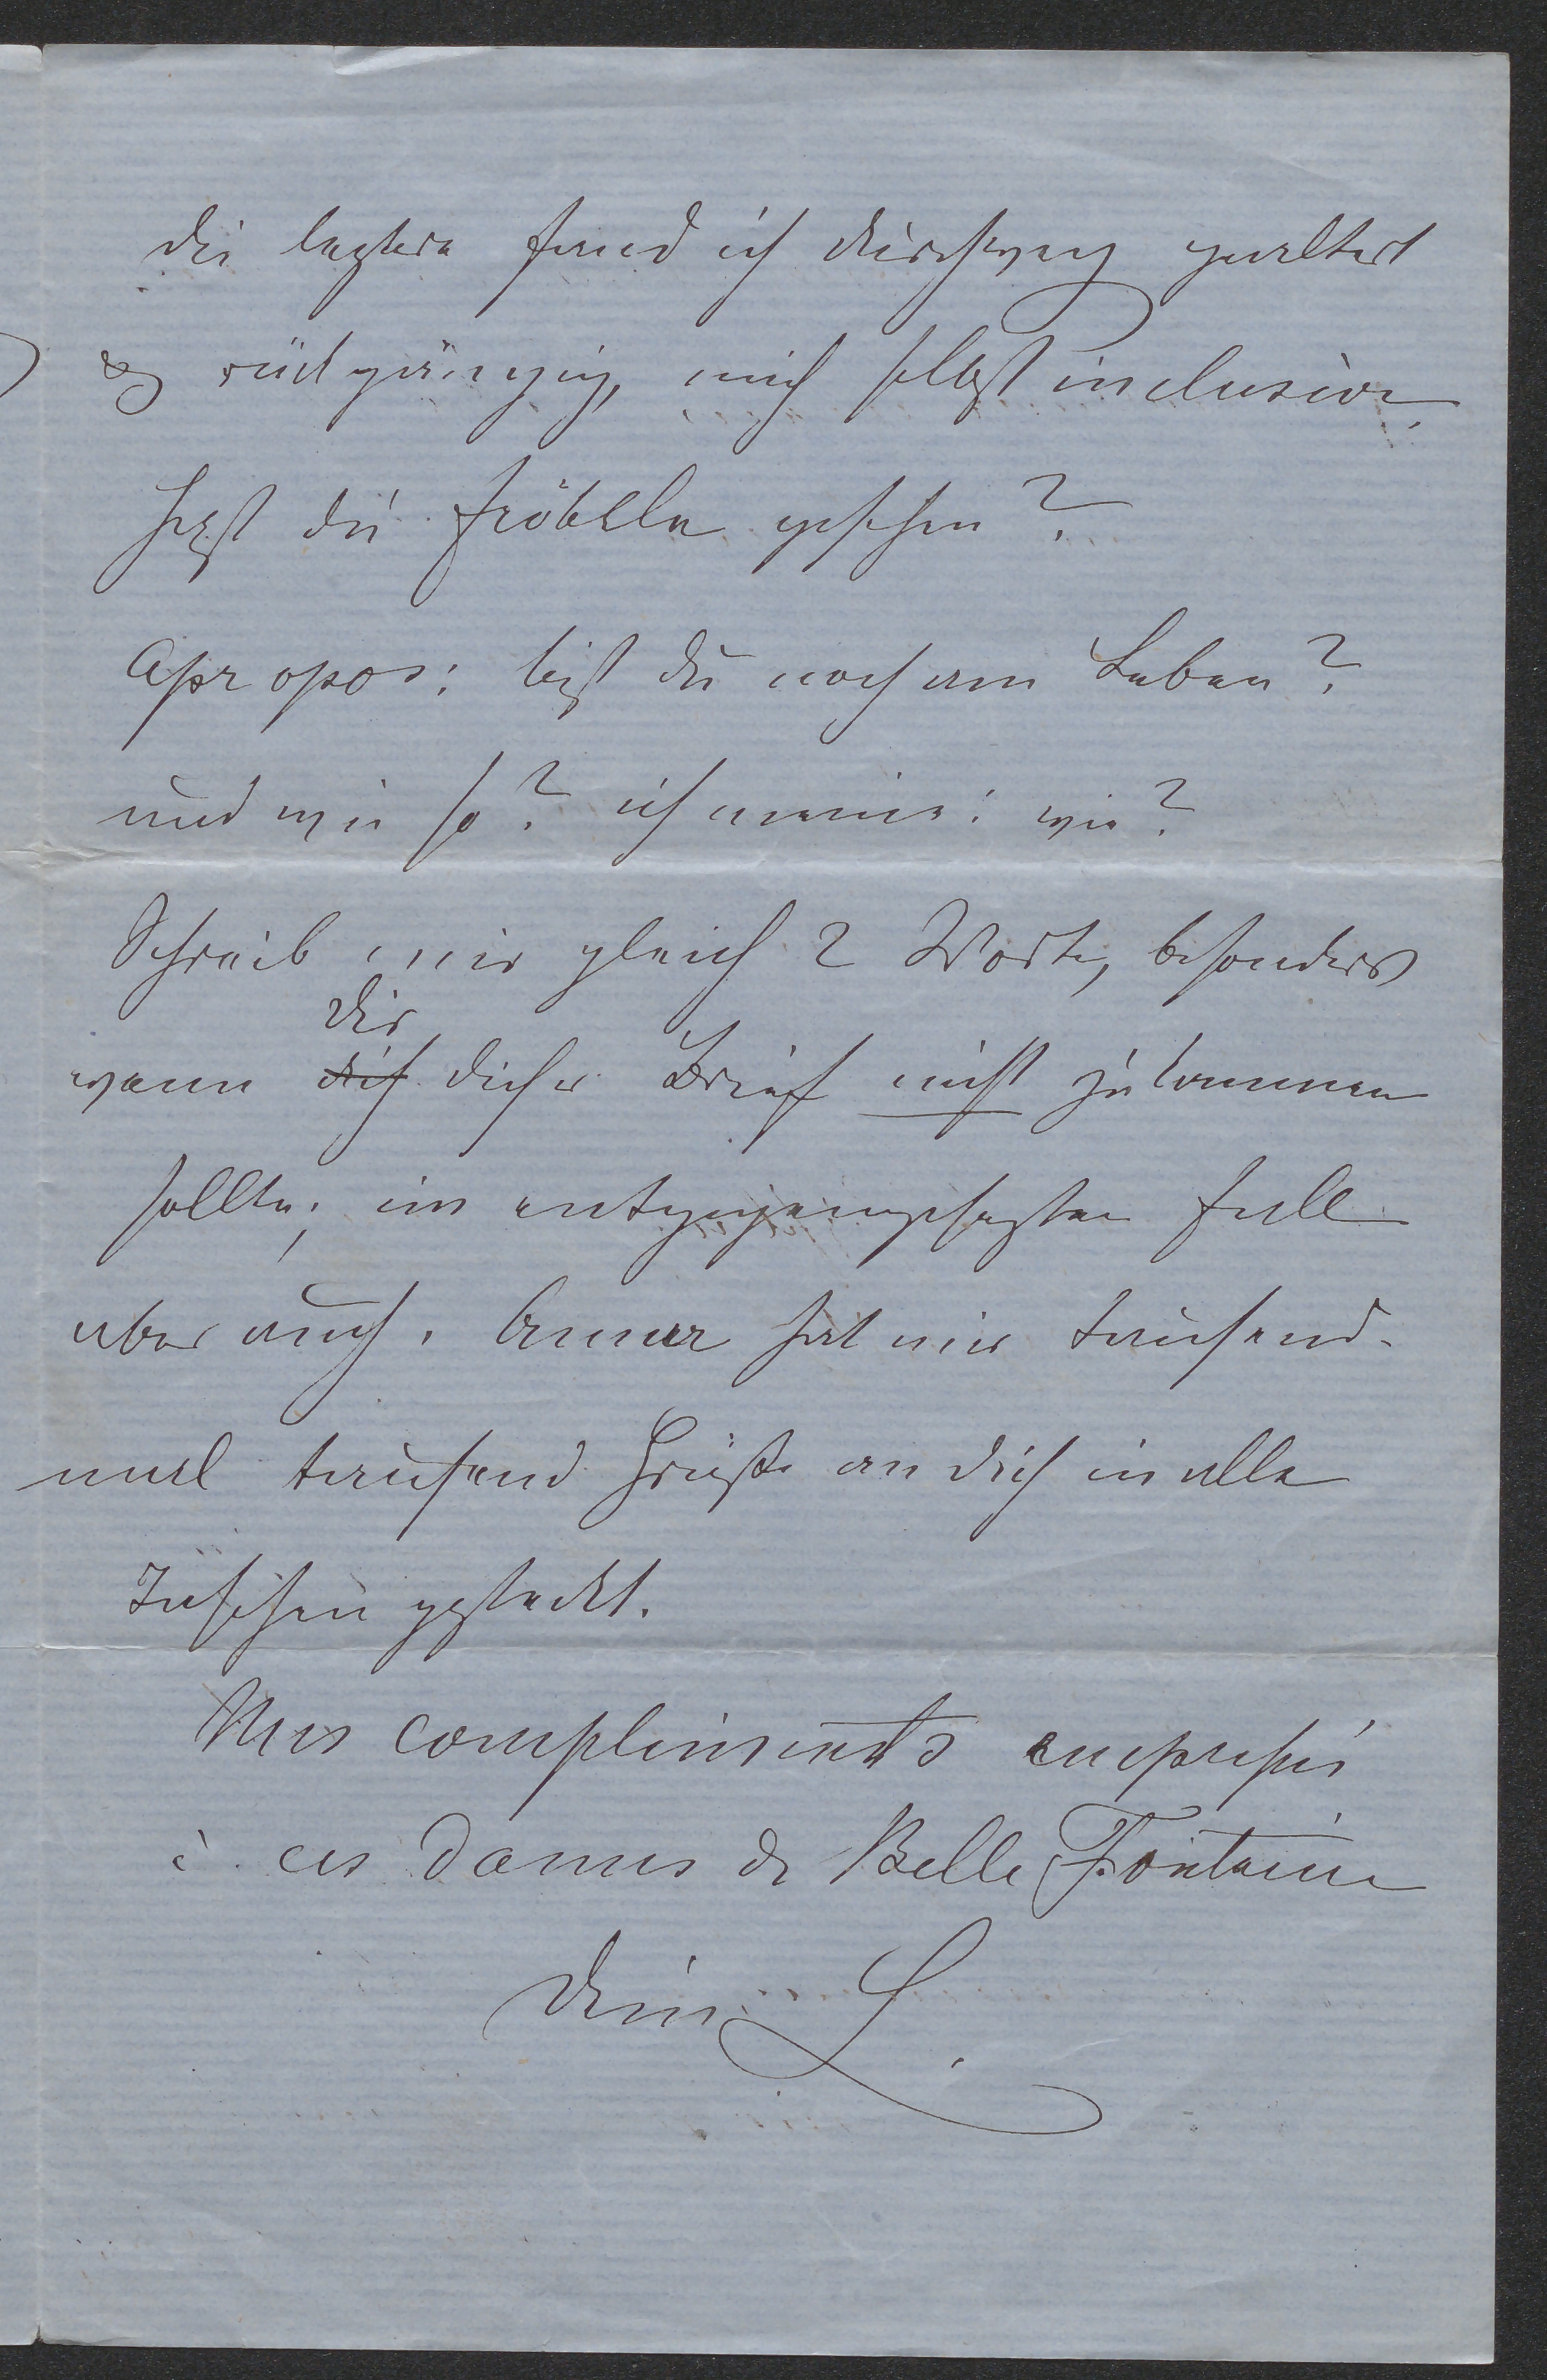 die letztere fand ich durchweg gealtert
& rückgängig, mich selbst inclusive.
Hast du Fröbeln gesehen?
Apropos: bist du noch am Leben?
und wie so? ich meine: wie?
Schreib mir gleich 2 Worte, besonders
dir
wenn dich dieser Brief nicht zukommen
sollte; im entgegengesetzten Fall
aber auch. Anna hat mir tausend-
mal tausend Grüße an dich in alle
Taschen gesteckt.
Mes compliments empressés
à ces dames de Belle Fontaine
Dein L.